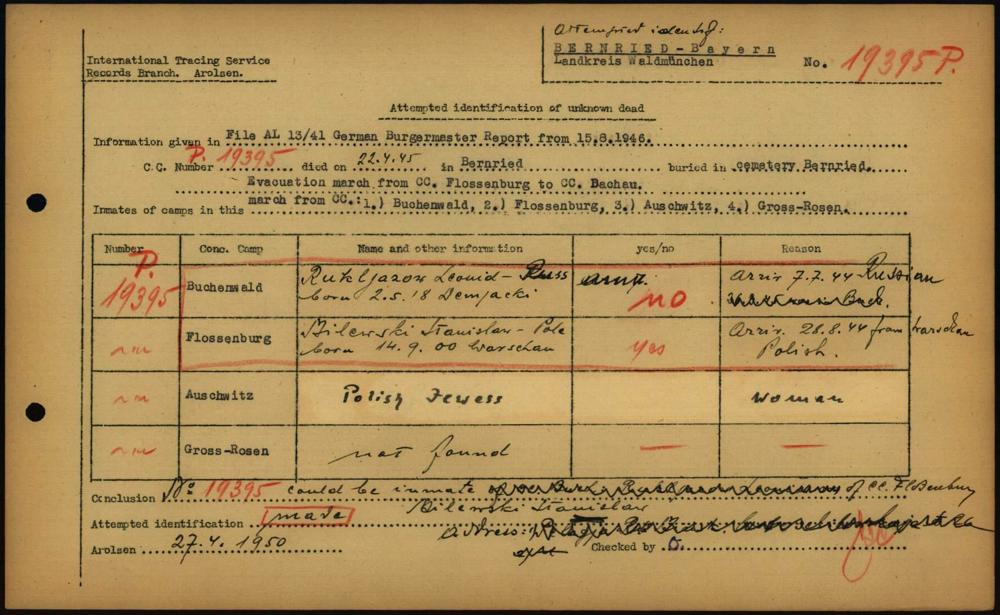 Attempted identif:
International Tracing Service
Records Branch. Arolsen.
BERNRIED-Bayern
Landkreis Waldmünchen
No. 19395 P.
Attempted identification of unknown dead
Information given in File AL 13/41 German Burgermaster Report from 15.8.1946.
C.C. Number P. 19395 died on 22.4.45 in Bernried buried in cemetery Bernried.
Evacuation march from CC. Flossenburg to CC. Dachau.
Inmates of camps in this march from CC.:1.) Buchenwald, 2.) Flossenburg, 3.) Auschwitz, 4.) Gross-Rosen.
Number Conc. Camp Name and other information yes/no Reason
P. 19395 Buchenwald Leonid - Russ no Arriv 7.7.44 Russian
born 2.5.18 Demjacki Buch.
-"- Flossenburg Bilewski Stanislaw - Pole yes Arriv. 28.8.44 from Warschau
born 14.9.00 Warschau Polish.
-"- Auschwitz Polish Jewess woman
-"- Gross-Rosen not found — —
Conclusion No 19395 could be inmate of CC. Flossenburg
Bilewski Stanislaw
Attempted identification made
Address:
Arolsen 27.4.1950 Checked by